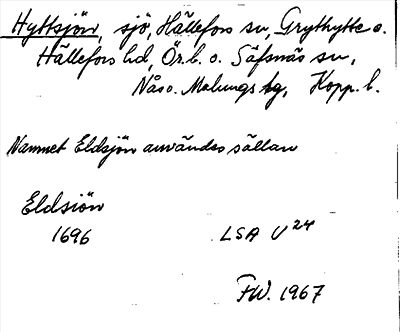 Hyttsjön, sjö, Hällefors sn, Grythytte o.
Hällefors hd, Ör. l. o. Säfsnäs sn,
Nås o. Malungs tg, Kopp. l.
Namnet Eldsjön användes sällan
Eldsiön
1696 LSA U 24
FW. 1967